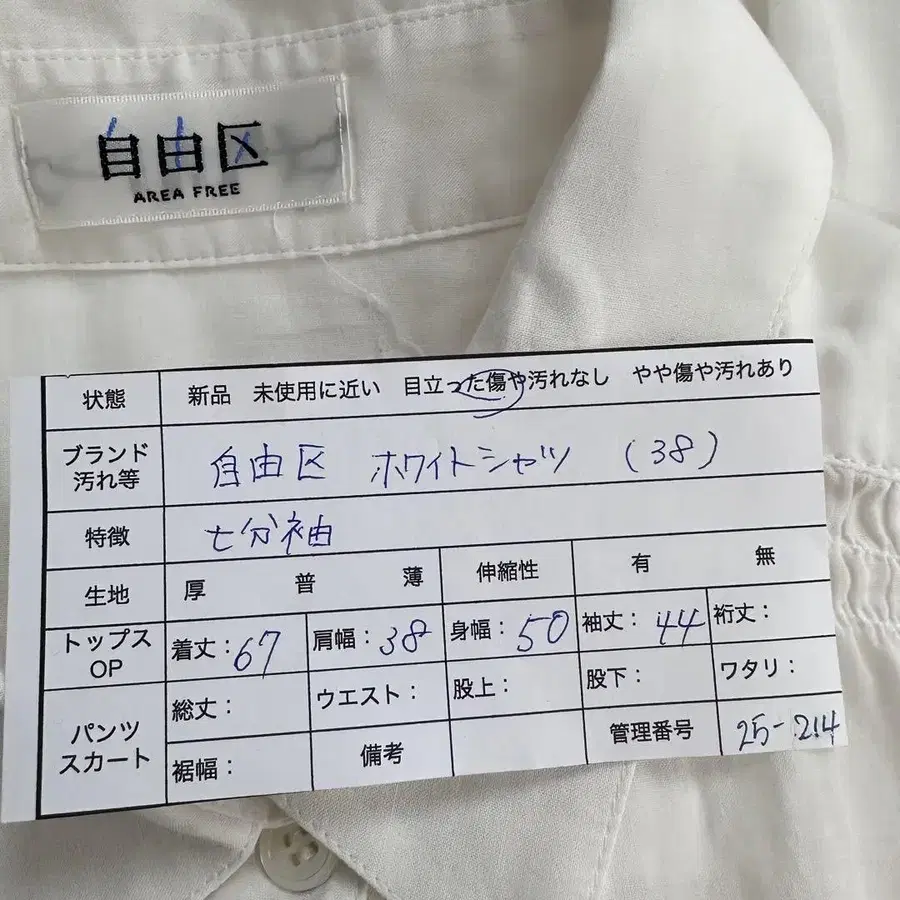 自由区
AREA FREE
状態 新品 未使用に近い 目立った傷や汚れなし やや傷や汚れあり
ブランド 汚れ等 自由区 ホワイトシャツ (38)
特徴 七分袖
生地 厚 普 薄 伸縮性 有 無
トップス OP 着丈:67 肩幅:38 身幅:50 袖丈:44 裄丈:
パンツ スカート 総丈: ウエスト: 股上: 股下: ワタリ:
裾幅: 備考 管理番号 25-214